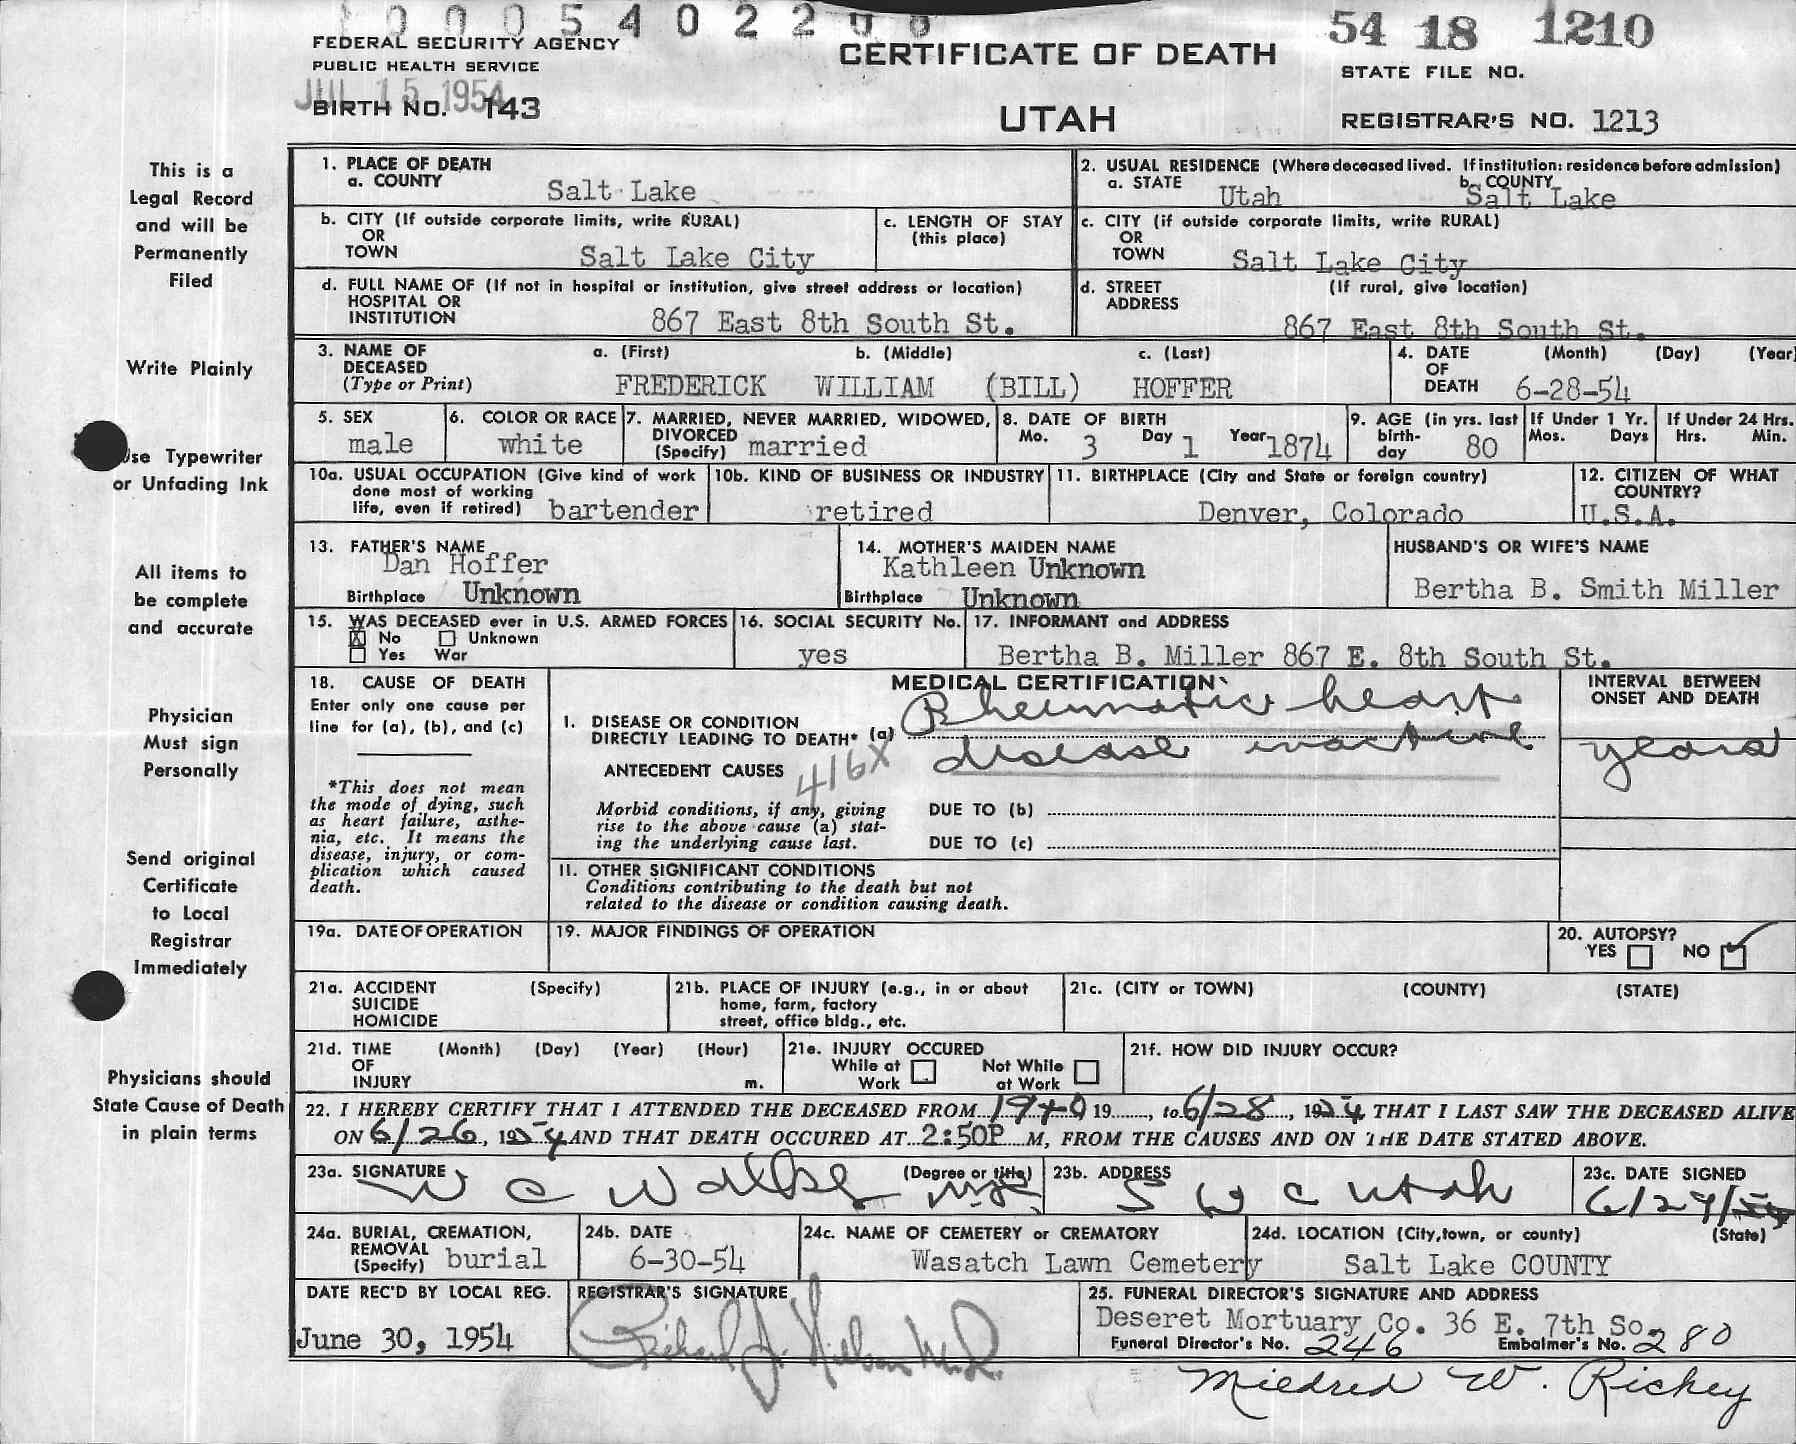 10005402200
54 18 1210
FEDERAL SECURITY AGENCY
PUBLIC HEALTH SERVICE
CERTIFICATE OF DEATH
STATE FILE NO.
JUL 15 1954
BIRTH NO. 143
UTAH
REGISTRAR'S NO. 1213
This is a
Legal Record
and will be
Permanently
Filed
Write Plainly
Use Typewriter
or Unfading Ink
All items to
be complete
and accurate
Physician
Must sign
Personally
Send original
Certificate
to Local
Registrar
Immediately
Physicians should
State Cause of Death
in plain terms
1. PLACE OF DEATH
a. COUNTY Salt Lake
2. USUAL RESIDENCE (Where deceased lived. If institution: residence before admission)
a. STATE Utah b. COUNTY Salt Lake
b. CITY (If outside corporate limits, write RURAL)
OR
TOWN Salt Lake City
c. LENGTH OF STAY
(this place)
c. CITY (if outside corporate limits, write RURAL)
OR
TOWN Salt Lake City
d. FULL NAME OF (If not in hospital or institution, give street address or location)
HOSPITAL OR
INSTITUTION 867 East 8th South St.
d. STREET (If rural, give location)
ADDRESS
867 East 8th South St.
3. NAME OF DECEASED (Type or Print)
a. (First) b. (Middle) c. (Last)
FREDERICK WILLIAM (BILL) HOFFER
4. DATE OF DEATH (Month) (Day) (Year)
6-28-54
5. SEX
male
6. COLOR OR RACE
white
7. MARRIED, NEVER MARRIED, WIDOWED,
DIVORCED
(Specify) married
8. DATE OF BIRTH
Mo. 3 Day 1 Year 1874
9. AGE (in yrs. last
birth-
day 80
If Under 1 Yr.
Mos. Days
If Under 24 Hrs.
Hrs. Min.
10a. USUAL OCCUPATION (Give kind of work
done most of working
life, even if retired) bartender
10b. KIND OF BUSINESS OR INDUSTRY
retired
11. BIRTHPLACE (City and State or foreign country)
Denver, Colorado
12. CITIZEN OF WHAT
COUNTRY?
U.S.A.
13. FATHER'S NAME
Dan Hoffer
Birthplace Unknown
14. MOTHER'S MAIDEN NAME
Kathleen Unknown
Birthplace Unknown
HUSBAND'S OR WIFE'S NAME
Bertha B. Smith Miller
15. WAS DECEASED ever in U.S. ARMED FORCES
X No Unknown
Yes War
16. SOCIAL SECURITY No.
yes
17. INFORMANT and ADDRESS
Bertha B. Miller 867 E. 8th South St.
18. CAUSE OF DEATH
Enter only one cause per
line for (a), (b), and (c)
*This does not mean
the mode of dying, such
as heart failure, asthe-
nia, etc. It means the
disease, injury, or com-
plication which caused
death.
MEDICAL CERTIFICATION
I. DISEASE OR CONDITION
DIRECTLY LEADING TO DEATH* (a) Rheumatic heart
disease inactive
ANTECEDENT CAUSES
416X
Morbid conditions, if any, giving
rise to the above cause (a) stat-
ing the underlying cause last.
DUE TO (b)
DUE TO (c)
INTERVAL BETWEEN
ONSET AND DEATH
years
II. OTHER SIGNIFICANT CONDITIONS
Conditions contributing to the death but not
related to the disease or condition causing death.
19a. DATE OF OPERATION
19. MAJOR FINDINGS OF OPERATION
20. AUTOPSY?
YES NO
21a. ACCIDENT (Specify)
SUICIDE
HOMICIDE
21b. PLACE OF INJURY (e.g., in or about
home, farm, factory
street, office bldg., etc.
21c. (CITY or TOWN) (COUNTY) (STATE)
21d. TIME (Month) (Day) (Year) (Hour)
OF
INJURY m.
21e. INJURY OCCURED
While at
Work
Not While
at Work
21f. HOW DID INJURY OCCUR?
22. I HEREBY CERTIFY THAT I ATTENDED THE DECEASED FROM 1940 19......, to 6/28, 1954 THAT I LAST SAW THE DECEASED ALIVE
ON 6/26, 1954 AND THAT DEATH OCCURED AT 2:50P M, FROM THE CAUSES AND ON THE DATE STATED ABOVE.
23a. SIGNATURE (Degree or title)
W C
23b. ADDRESS
S L C Utah
23c. DATE SIGNED
24a. BURIAL, CREMATION,
REMOVAL
(Specify) burial
24b. DATE
6-30-54
24c. NAME OF CEMETERY or CREMATORY
Wasatch Lawn Cemetery
24d. LOCATION (City, town, or county) (State)
Salt Lake COUNTY
DATE REC'D BY LOCAL REG.
June 30, 1954
REGISTRAR'S SIGNATURE
Richard J. Nielson M.D.
25. FUNERAL DIRECTOR'S SIGNATURE AND ADDRESS
Deseret Mortuary Co. 36 E. 7th So.
Funeral Director's No. 246 Embalmer's No. 280
Mildred W. Rickey